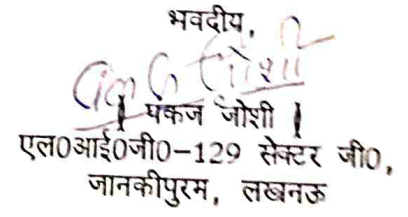 भवदीय,
जोशी
| पंकज जोशी |
एल0आई0जी0-129 सेक्टर जी0,
जानकीपुरम, लखनऊ